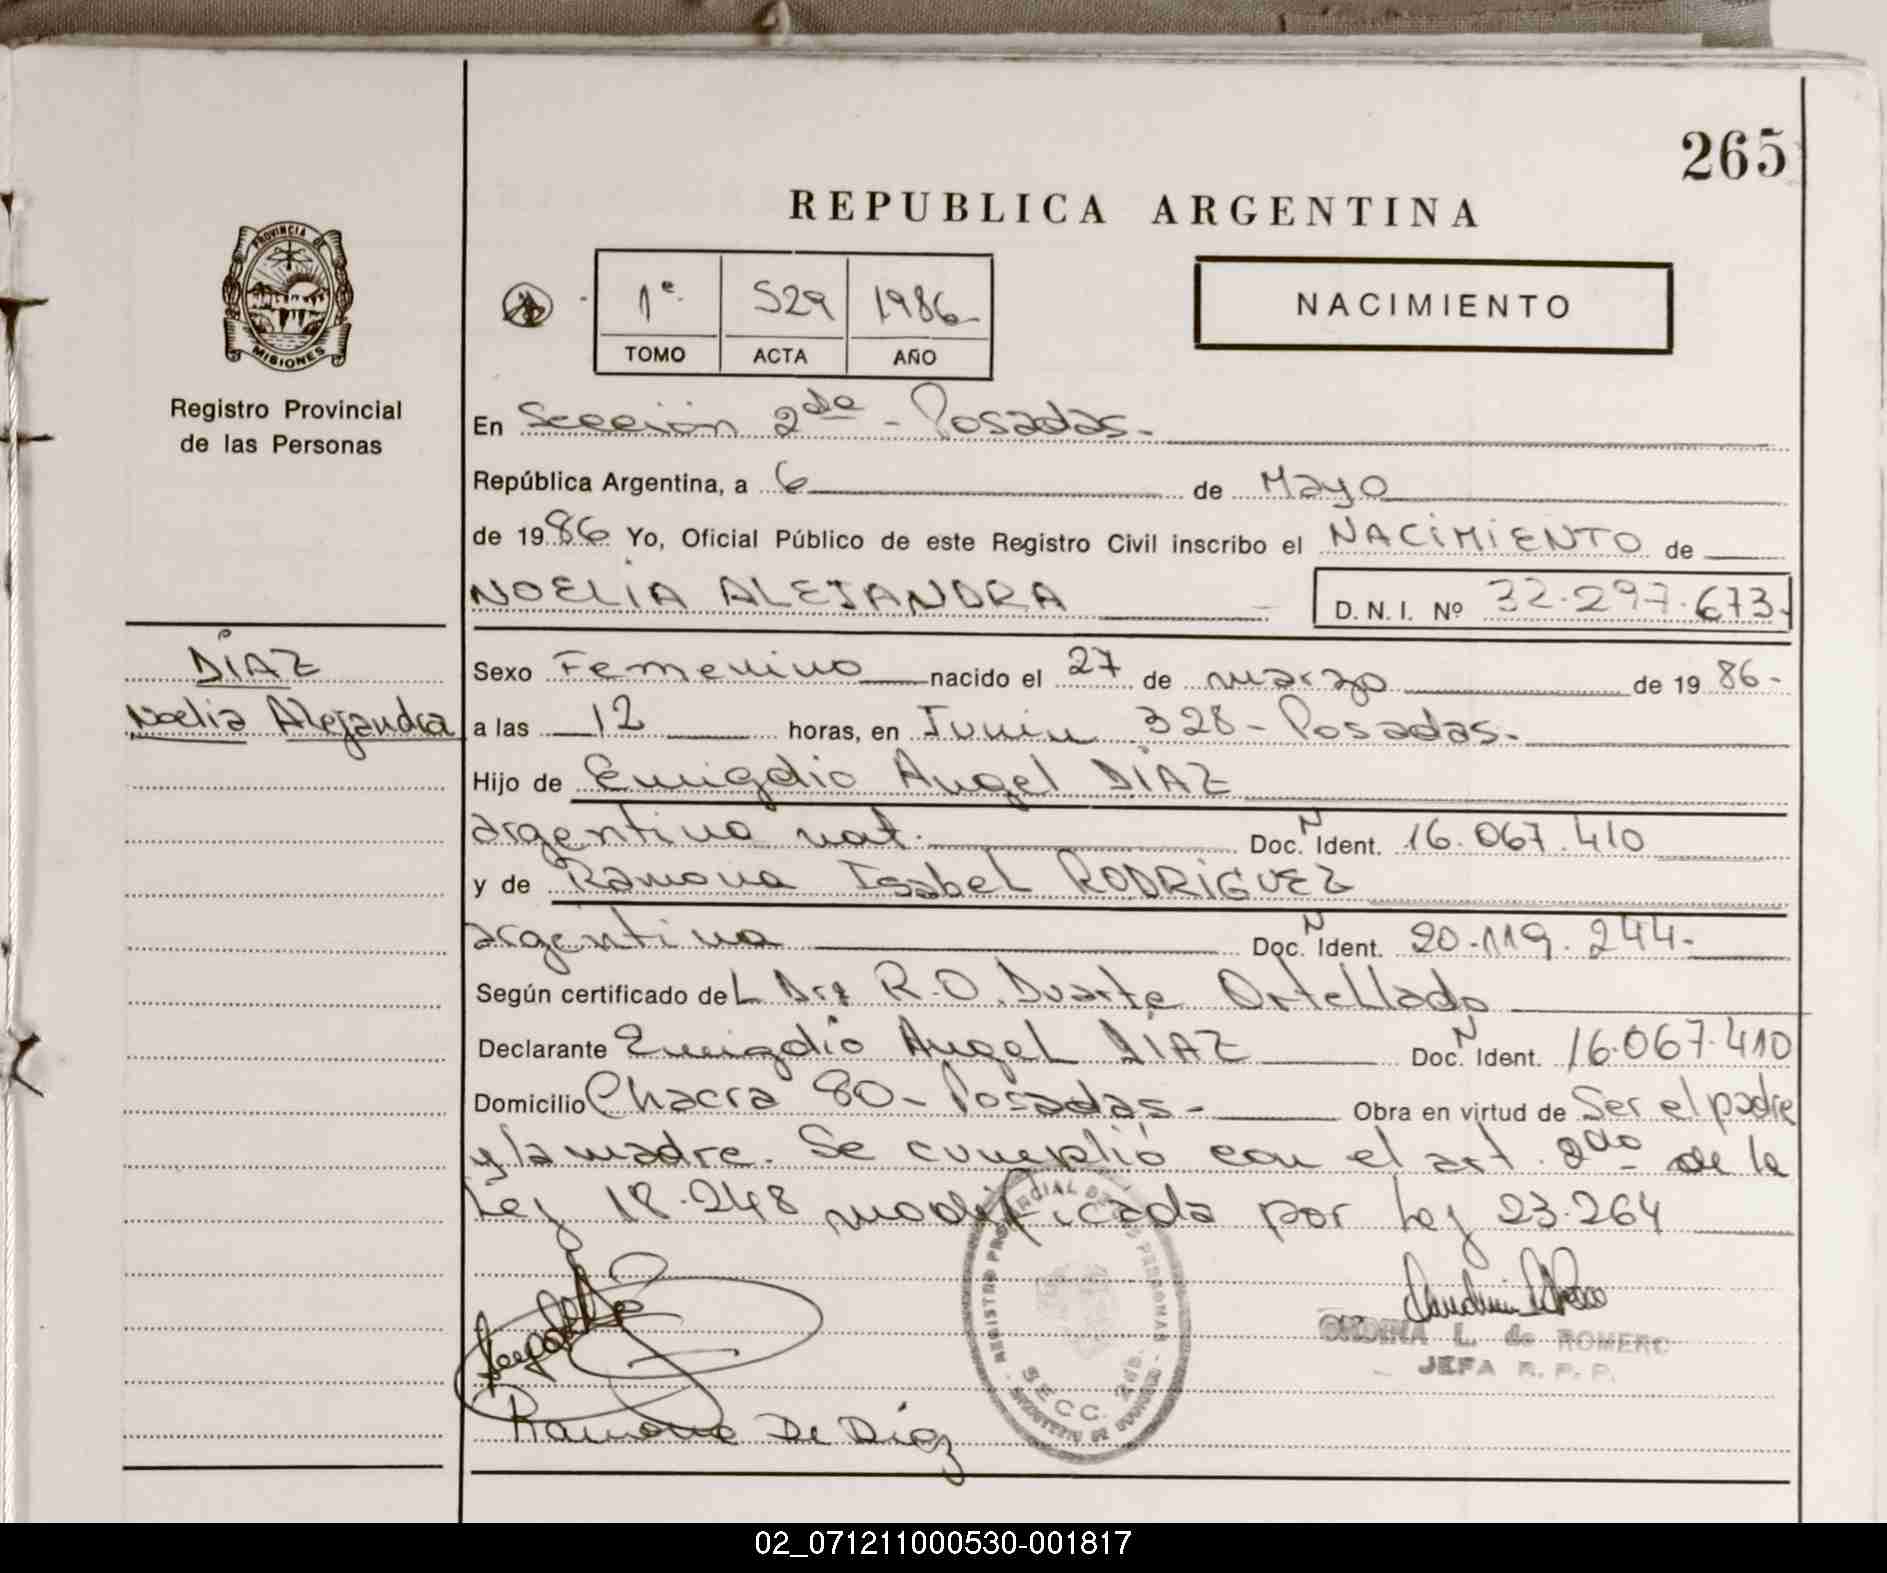 265
REPUBLICA ARGENTINA
PROVINCIA DE
MISIONES
Registro Provincial
de las Personas
1º 529 1986
TOMO ACTA AÑO
NACIMIENTO
En Sección 2da - Posadas.
República Argentina, a 6 de Mayo
de 1986 Yo, Oficial Público de este Registro Civil inscribo el NACIMIENTO de
NOELIA ALEJANDRA D.N.I. Nº 32.297.673.
DIAZ
Noelia Alejandra
Sexo Femenino nacido el 27 de marzo de 1986-
a las 12 horas, en Junin 328 - Posadas.
Hijo de Emigdio Angel DIAZ
argentino nat. Doc. N Ident. 16.067.410
y de Ramona Isabel RODRIGUEZ
argentina Doc. N Ident. 20.119.244-
Según certificado del R.O. Duarte Ortellado
Declarante Emigdio Angel DIAZ Doc. N Ident. 16.067.410
Domicilio Chacra 80 - Posadas - Obra en virtud de Ser el padre
y la madre. Se cumplió con el art. 2do de la
Ley 18.248 modificada por Ley 23.264
REGISTRO PROVINCIAL DE LAS PERSONAS
SECC. 2da.
L. de ROMERO
JEFA R.P.P.
Ramona De Diaz
02_071211000530-001817